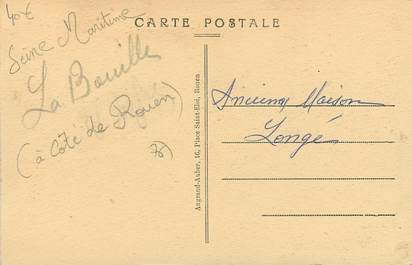 CARTE POSTALE
40€
Seine Maritime
La Bouille
(à côté de Rouen)
76)
Angrand-Aulier, 16, Place Saint-Eloi, Rouen
Ancienne Maison
Longé